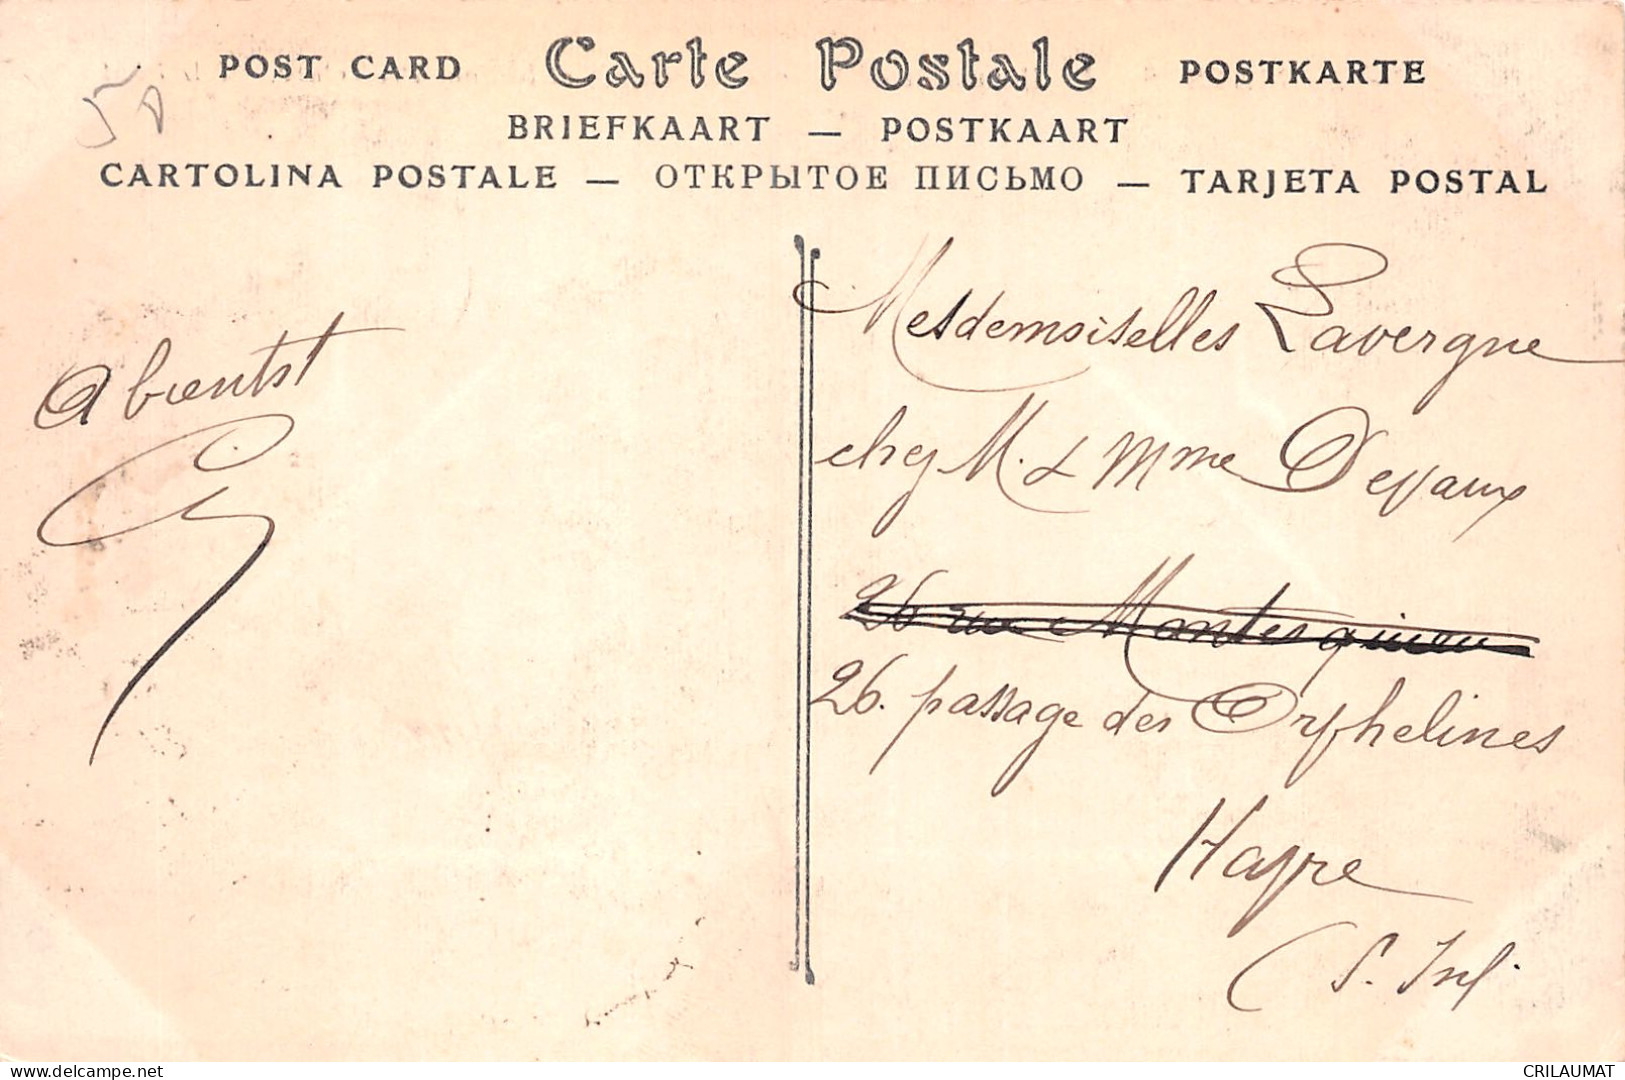 POST CARD Carte Postale POSTKARTE
BRIEFKAART — POSTKAART
CARTOLINA POSTALE — ОТКРЫТОЕ ПИСЬМО — TARJETA POSTAL
50
A bientôt
Mesdemoiselles Lavergne
chez M. & Mme Devaux
26 rue Montesquieu
26. passage des Orphelines
Havre
(S. Inf.
delcampe.net
CRILAUMAT